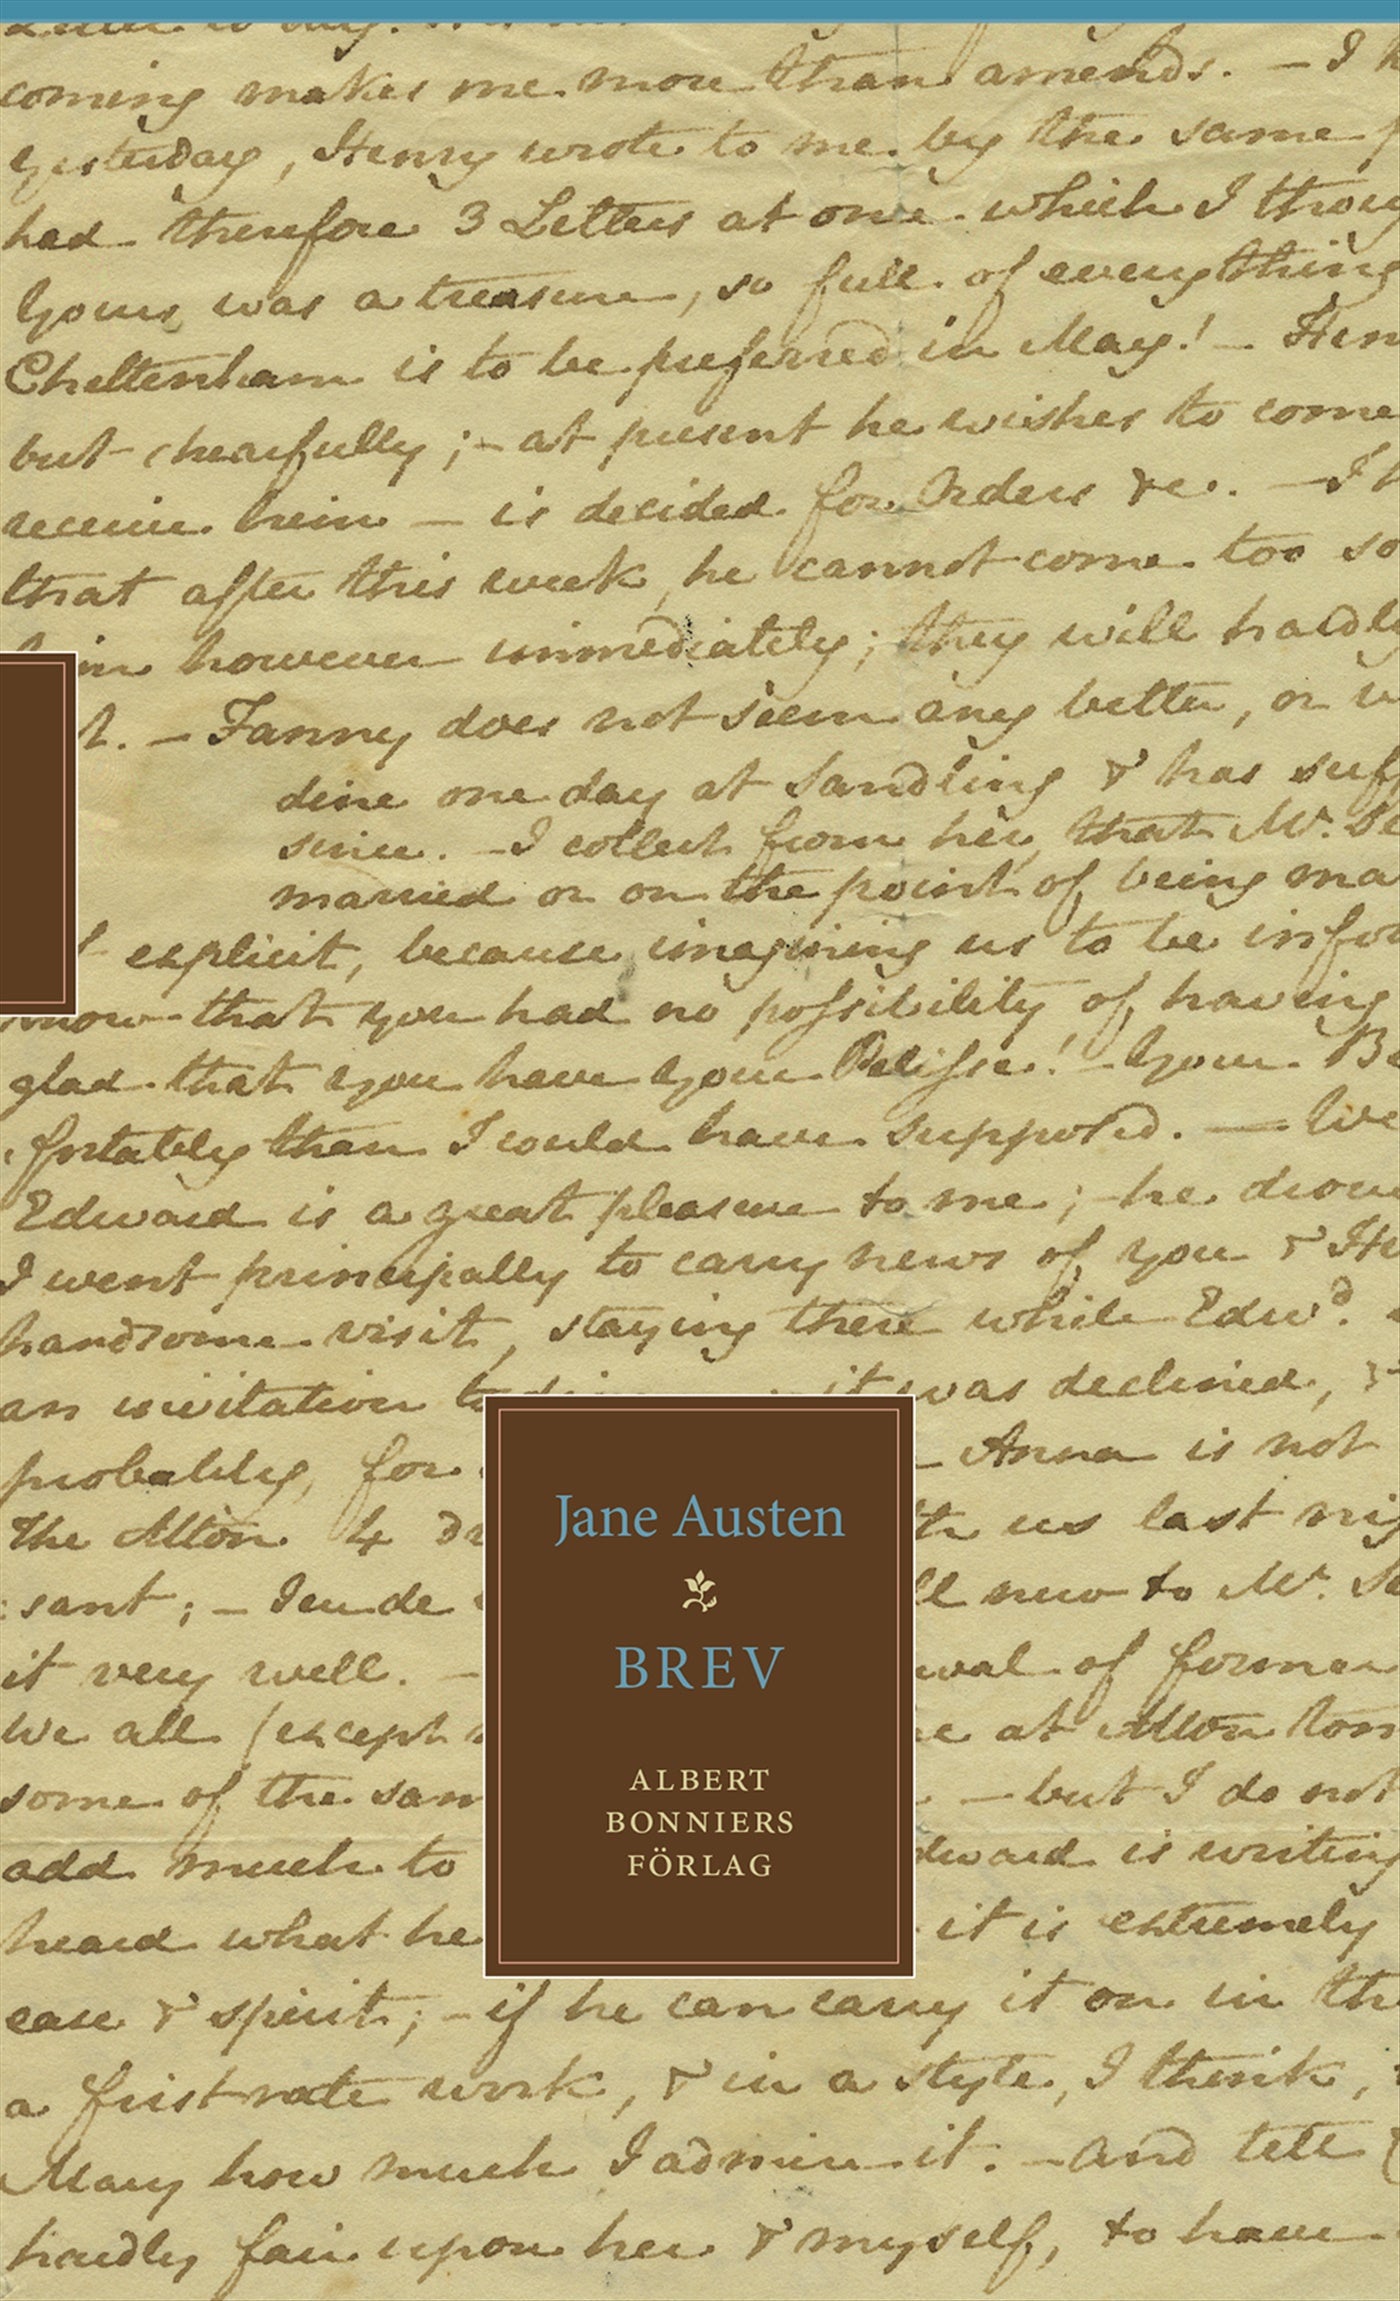 coming makes me more than amends. — I h
Yesterday, Henry wrote to me by the same p
had therefore 3 Letters at once which I thou
Yours was a treasure, so full of everything
Cheltenham is to be preferred in May! — Hen
but chearfully; — at present he wishes to come
receive him — is decided for Orders &c. — I h
that after this week, he cannot come too so
him however immediately; they will hardly
t. — Fanny does not seem any better, or
dine one day at Sandling & has suff
since. — I collect from her, that Mr. Se
married or on the point of being ma
explicit, because imagining us to be infor
know that you had no possibility of having
glad that you have your Pelisse! — Your Be
fortably than I could have supposed. — We
Edward is a great pleasure to me; — he drove
I went principally to carry news of you & He
handsome visit, staying there while Edwd.
an invitation to it was declined, &
probability, for — Anna is not
The Alton 4 us last nig
sant; — Jeu de new to Mr. S
it very well. — wal of former
We all (except at Alton
some of the sam — but I do not
add much to dward is writing
heard what he it is extremely
ease & spirit; — if he can carry it on in th
a first rate work, & in a style, I think,
Mary how much I admire it. — And tell
hardly fair upon her & myself, to have
Jane Austen
BREV
ALBERT
BONNIERS
FÖRLAG